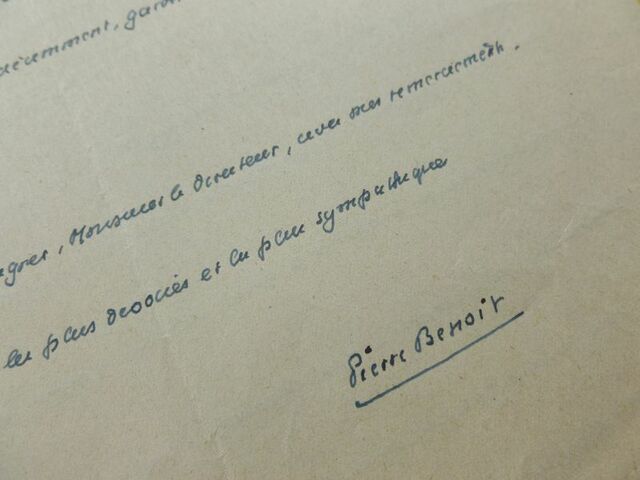 récemment, gar
agréer, Monsieur le directeur, avec mes remerciements.
les plus dévoués et les plus sympathiques
Pierre Benoit